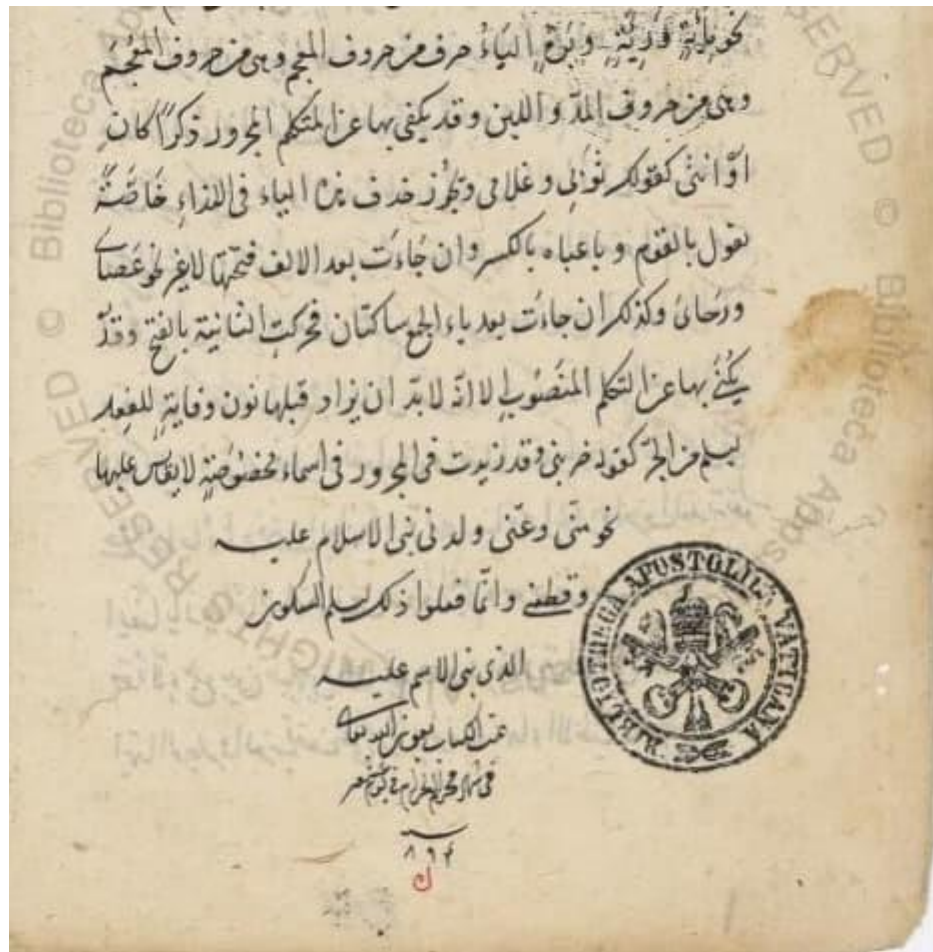 الياءُ حرف من حروف المعجم وهى من حروف المعجم
وهى من حروف المدّ و اللين وقد يكنى بها عن المتكلم المجرور ذكرًا كان
اوْ انثىٰ كقولك ثوبى و غلامى حذف الياء فى النداءِ خاصّةً
تقول يا لقوم و يا عباد بالكسر وان جاءت بعد الالف فتحتها لا غير نحو عصاى
ورحاىَ وكذلك ان جاءت بعد ياء الجمع ساكنان فحركتِ الثانية بالفتح وقد
يكنى بها عن المتكلم المنصوب الا انّه لا بدّ ان يزاد قبلها نون وقايةٍ للفعل
ليسلم من الجرّ كقولك ضربنى وقد زيدت فى المجرور فى اسماء مخصوصةٍ لا يقاس عليها
نحو منّى وعنّى و لدنى بنى الاسلام عليه
وقطنى وانّما فعلوا ذلك ليسلم السكون
الذى بنى الاسم عليه
تمت الكتاب بعون الله تعالى
فى شهر محرم الحرام
BIBLIOTHECA APOSTOLICA VATICANA